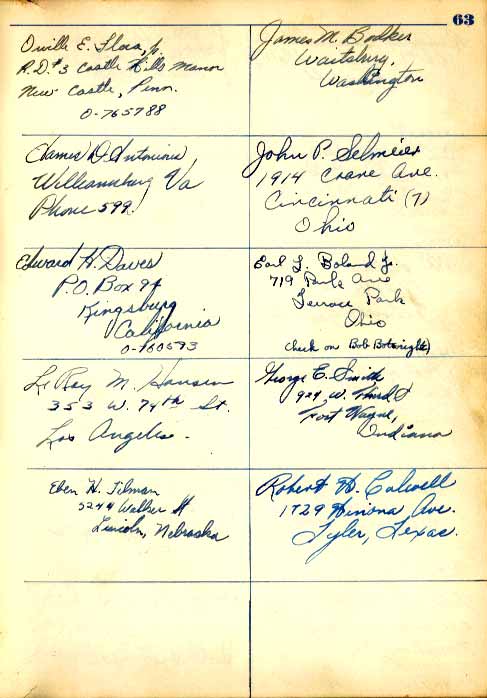 63
Orville E. Flora, Jr.
R.D.#3 Castle Hills Manor
New Castle, Penn.
O-765788
James M. Bodker
Waitsburg,
Washington
James D. Antonious
Williamsburg Va
Phone 599.
John P. Selmeier
1914 Crane Ave.
Cincinnati (7)
Ohio
Edward H. Daves
P.O. Box 94
Kingsburg
California
O-760593
Earl L. Boland Jr.
719 Park Ave
Terrace Park
Ohio
(check on Bob Botsnight)
LeRoy M. Hansen
353 W. 74th St.
Los Angeles.
George E. Smith
924 W. Third St
Fort Wayne,
Indiana
Eben H. Tilman
5244 Walker St
Lincoln, Nebraska
Robert H. Calwell
1729 Ave.
Tyler, Texas.